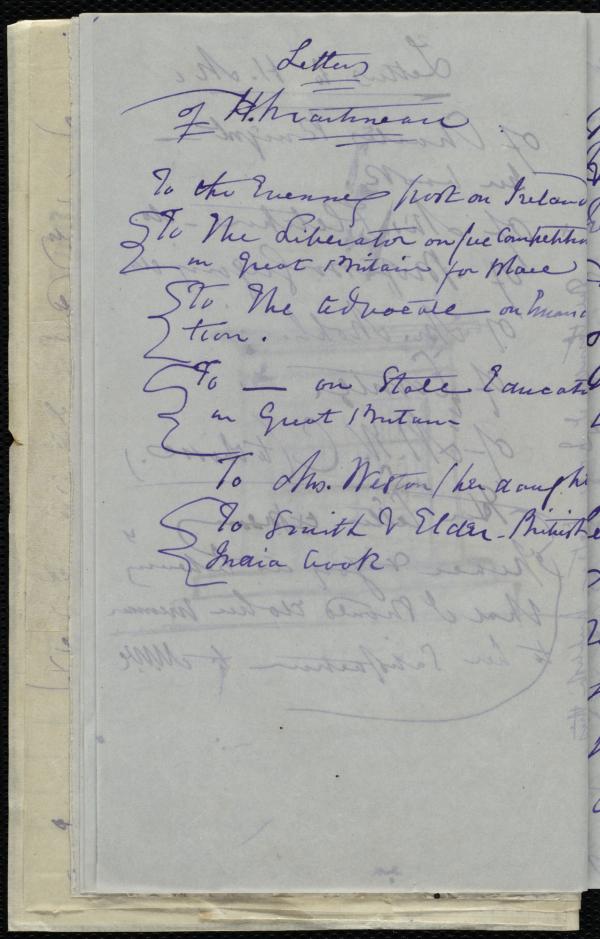 Letters
of H. Martineau
To the Evening post on Ireland
To The Liberator on free Competition
in Great Britain for place
To The Advocate on Emanci
tion.
To — on State Educati
in Great Britain
To Mrs. Weston (her daught
To Smith & Elder - British
India book